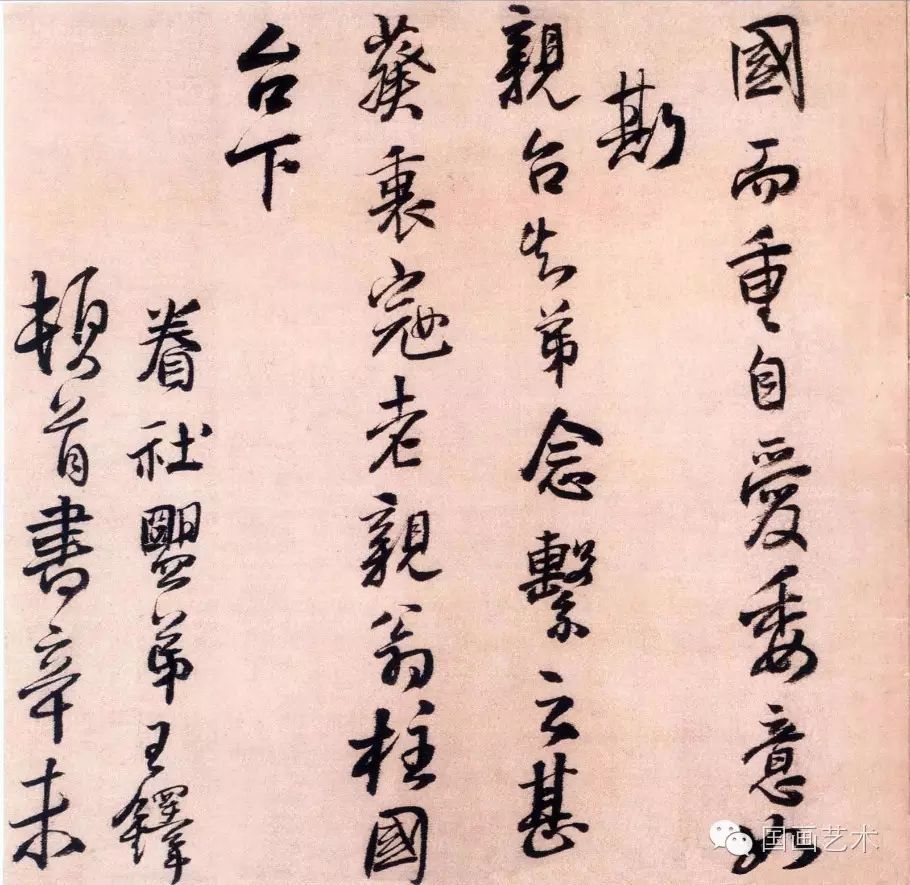 國而重自愛委意如
斯
親台知弟念繫云甚
葵衷寇老親翁柱國
台下
眷社盟弟王鐸
頓首書辛未
国画艺术